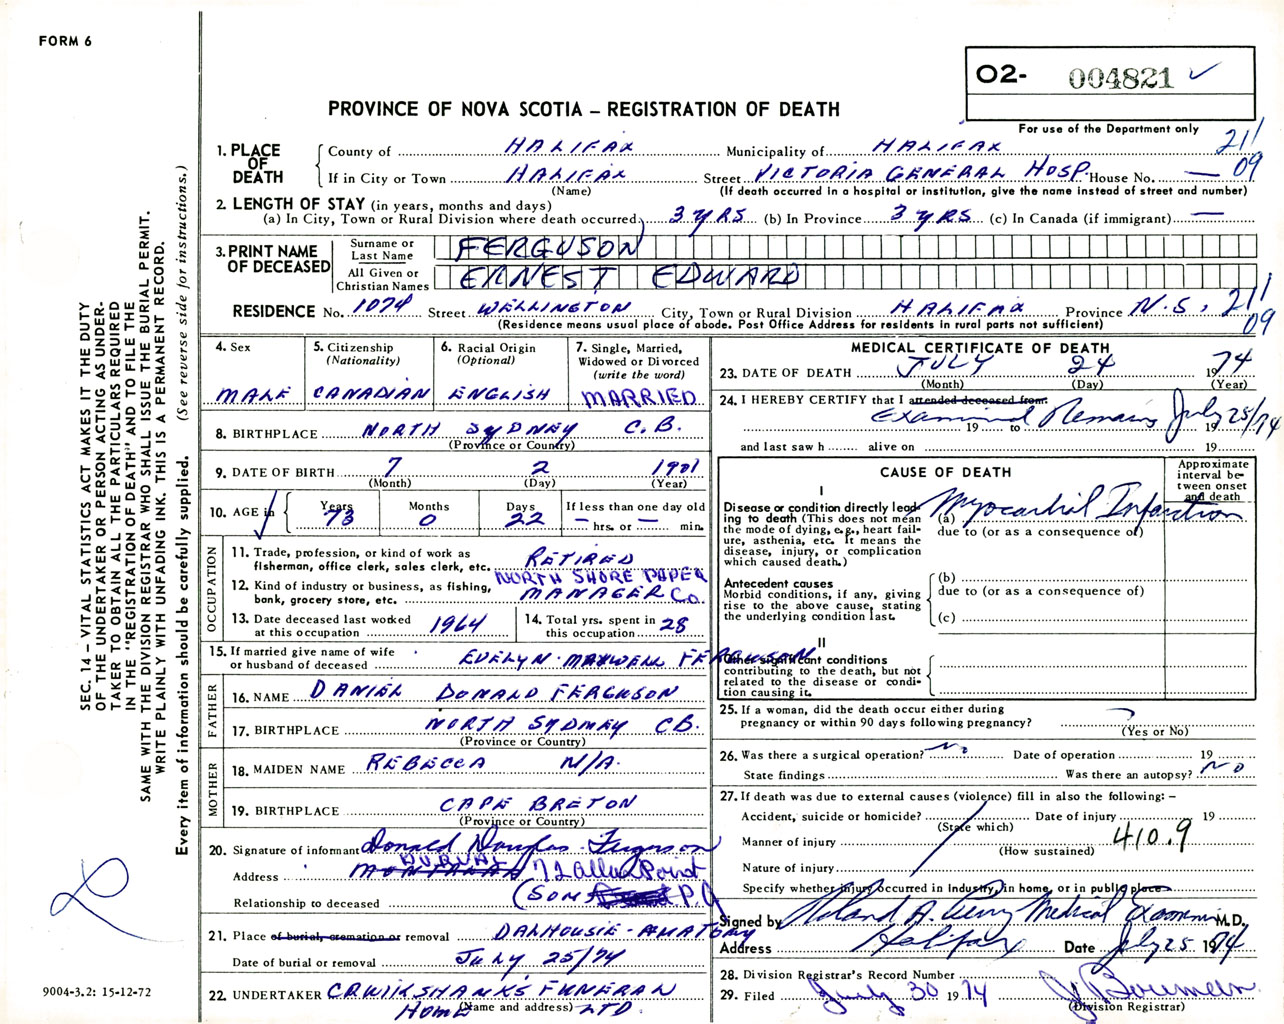 FORM 6
O2- 004821 ✓
PROVINCE OF NOVA SCOTIA – REGISTRATION OF DEATH
For use of the Department only
211
09
1. PLACE OF DEATH
County of HALIFAX Municipality of HALIFAX
If in City or Town HALIFAX Street VICTORIA GENERAL HOSP. House No. —
(Name) (If death occurred in a hospital or institution, give the name instead of street and number)
2. LENGTH OF STAY (in years, months and days)
(a) In City, Town or Rural Division where death occurred 3 YRS (b) In Province 3 YRS (c) In Canada (if immigrant) —
3. PRINT NAME OF DECEASED
Surname or Last Name FERGUSON
All Given or Christian Names ERNEST EDWARD
RESIDENCE No. 1074 Street WELLINGTON City, Town or Rural Division HALIFAX Province N.S. 211
09
(Residence means usual place of abode. Post Office Address for residents in rural parts not sufficient)
4. Sex
MALE
5. Citizenship
(Nationality)
CANADIAN
6. Racial Origin
(Optional)
ENGLISH
7. Single, Married,
Widowed or Divorced
(write the word)
MARRIED
8. BIRTHPLACE NORTH SYDNEY C.B.
(Province or Country)
9. DATE OF BIRTH 7 2 1901
(Month) (Day) (Year)
10. AGE in
Years Months Days If less than one day old
73 0 22 — hrs. or — min.
OCCUPATION
11. Trade, profession, or kind of work as
fisherman, office clerk, sales clerk, etc. RETIRED
12. Kind of industry or business, as fishing, NORTH SHORE PAPER
bank, grocery store, etc. MANAGER Co.
13. Date deceased last worked
at this occupation 1964
14. Total yrs. spent in
this occupation 28
15. If married give name of wife
or husband of deceased EVELYN MAXWELL FERGUSON
FATHER
16. NAME DANIEL DONALD FERGUSON
17. BIRTHPLACE NORTH SYDNEY CB.
(Province or Country)
MOTHER
18. MAIDEN NAME REBECCA N/A.
19. BIRTHPLACE CAPE BRETON
(Province or Country)
20. Signature of informant Donald Douglas Ferguson
DORVAL
Address MONTREAL 72 Allan Point
Relationship to deceased (SON) P.Q
21. Place of burial, cremation or removal DALHOUSIE - ANATOMY
Date of burial or removal July 25/74
22. UNDERTAKER CRUIKSHANKS FUNERAL
HOME (Name and address) LTD.
MEDICAL CERTIFICATE OF DEATH
23. DATE OF DEATH JULY 24 1974
(Month) (Day) (Year)
24. I HEREBY CERTIFY that I attended deceased from:
Examined Remains July 25/74
19 to
and last saw h alive on 19
CAUSE OF DEATH
Approximate
interval be-
tween onset
and death
I
Disease or condition directly lead-
ing to death (This does not mean
the mode of dying, e.g., heart fail-
ure, asthenia, etc. It means the
disease, injury, or complication
which caused death.)
(a) Myocardial Infarction
due to (or as a consequence of)
Antecedent causes
Morbid conditions, if any, giving
rise to the above cause, stating
the underlying condition last.
(b)
due to (or as a consequence of)
(c)
II
Other significant conditions
contributing to the death, but not
related to the disease or condi-
tion causing it.
25. If a woman, did the death occur either during
pregnancy or within 90 days following pregnancy?
(Yes or No)
26. Was there a surgical operation? No Date of operation 19
State findings Was there an autopsy? No
27. If death was due to external causes (violence) fill in also the following: –
Accident, suicide or homicide? Date of injury 19
(State which)
Manner of injury 410.9
(How sustained)
Nature of injury
Specify whether injury occurred in Industry, in home, or in public place
Signed by Roland A. Perry Medical Examiner M.D.
Address Halifax Date July 25 1974
28. Division Registrar's Record Number
29. Filed July 30 1974 J Bowman
(Division Registrar)
SEC. 14 – VITAL STATISTICS ACT MAKES IT THE DUTY
OF THE UNDERTAKER OR PERSON ACTING AS UNDER-
TAKER TO OBTAIN ALL THE PARTICULARS REQUIRED
IN THE "REGISTRATION OF DEATH" AND TO FILE THE
SAME WITH THE DIVISION REGISTRAR WHO SHALL ISSUE THE BURIAL PERMIT.
WRITE PLAINLY WITH UNFADING INK. THIS IS A PERMANENT RECORD.
Every item of information should be carefully supplied. (See reverse side for instructions.)
9004-3.2: 15-12-72